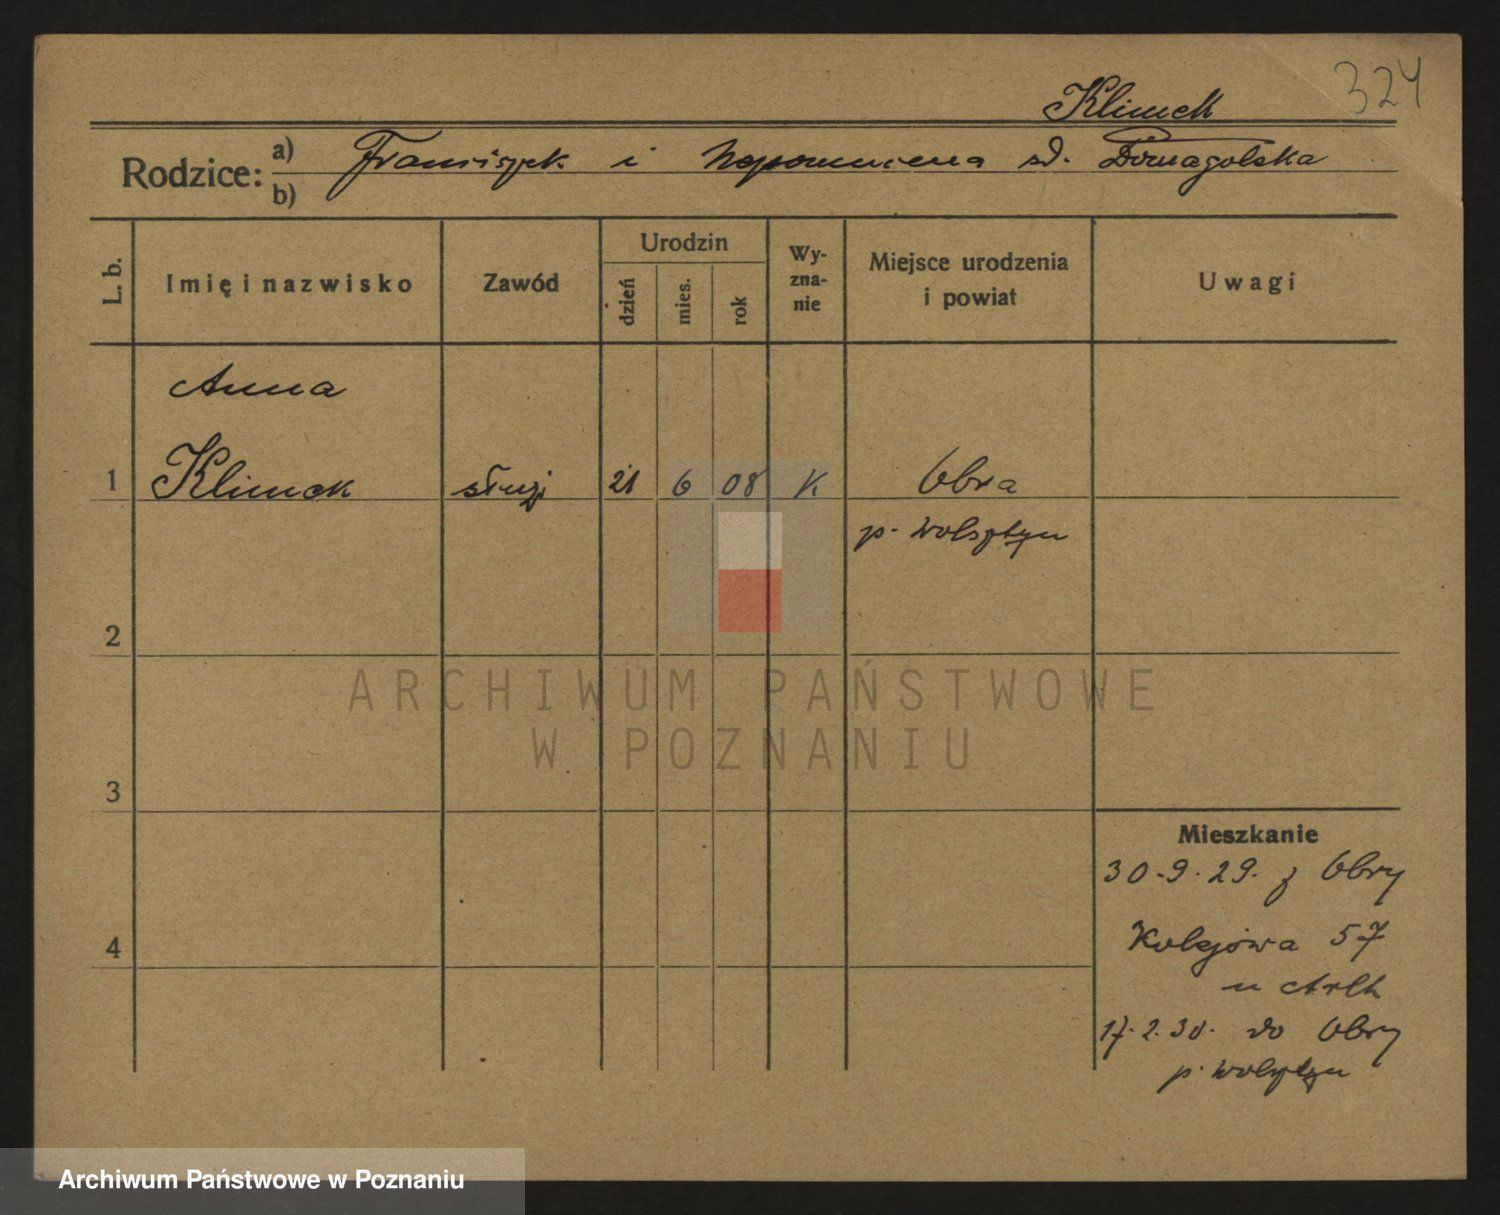 324
Klimek
Rodzice: a) Franciszek i Nepomucena zd.
b)
L. b.
Imię i nazwisko
Zawód
Urodzin
dzień
mies.
rok
Wy-
zna-
nie
Miejsce urodzenia
i powiat
Uwagi
Anna
1 Klimek służ 21 6 08 K Obra
p. Wolsztyn
2
3
4
Mieszkanie
30.9.29. z Obry
Kolejowa 57
u
17.2.30. do Obry
p. Wolsztyn
ARCHIWUM PAŃSTWOWE
W POZNANIU
Archiwum Państwowe w Poznaniu